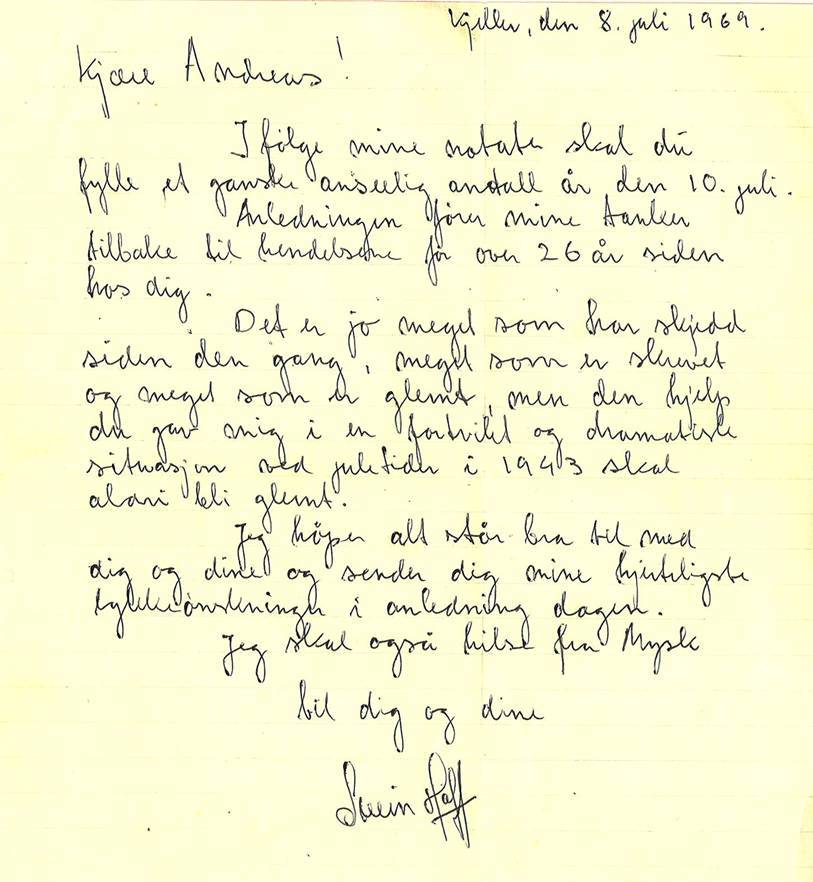 Kjeller, den 8. juli 1969.
Kjære Andreas!
Ifølge mine notater skal du
fylle et ganske anseelig antall år den 10. juli.
Anledningen fører mine tanker
tilbake til hendelsene for over 26 år siden
hos dig.
Det er jo meget som har skjedd
siden den gang, meget som er skrevet
og meget som er glemt, men den hjelp
du gav mig i en fortvilt og dramatisk
situasjon ved juletider i 1943 skal
aldri bli glemt.
Jeg håper alt står bra til med
dig og dine og sender dig mine hjerteligste
lykkeønskninger i anledning dagen.
Jeg skal også hilse fra Mysk
til dig og dine
Svein